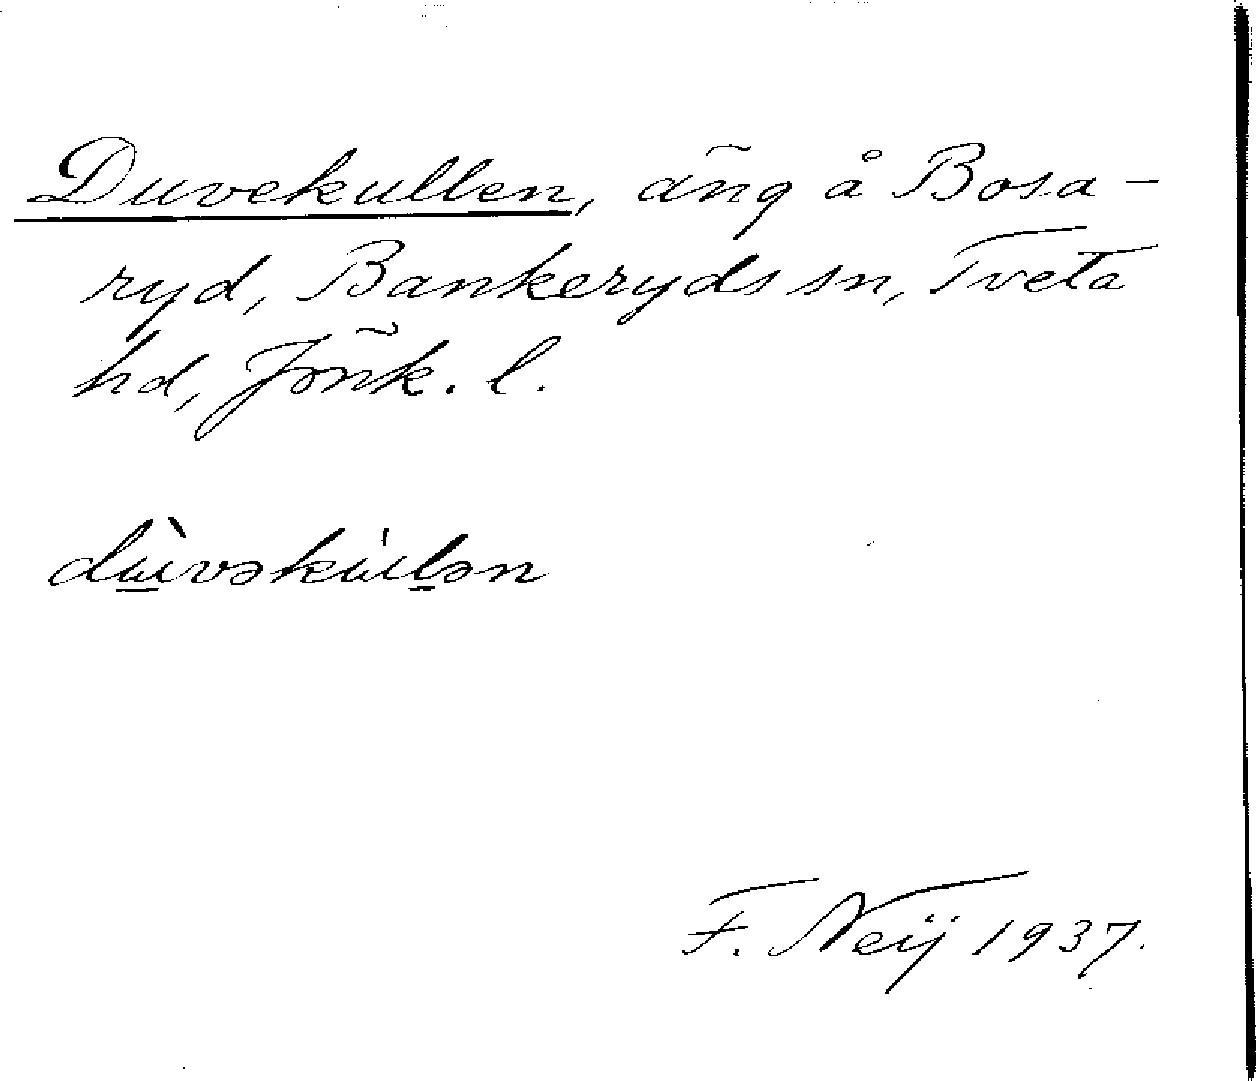 Duvekullen, äng å Bosa-
ryd, Bankeryds sn, Tveta
hd, Jönk. l.
dɯ̀vəkɯ́lən
F. Neij 1937.